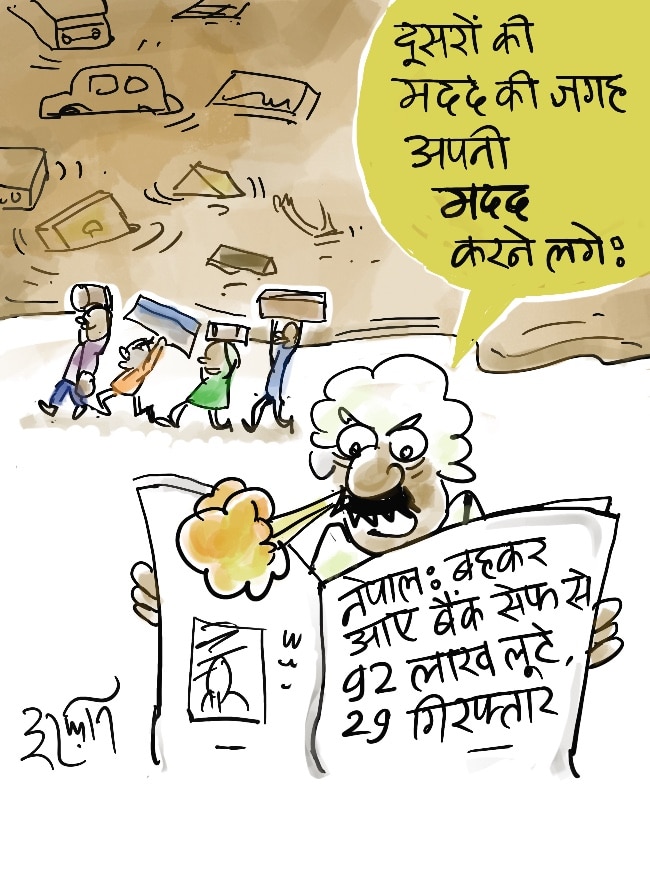 दूसरों की
मदद की जगह
अपनी
मदद
करने लगे:
नेपाल: बहकर
आए बैंक सेफ से
92 लाख लूटे,
29 गिरफ्तार
इरफ़ान